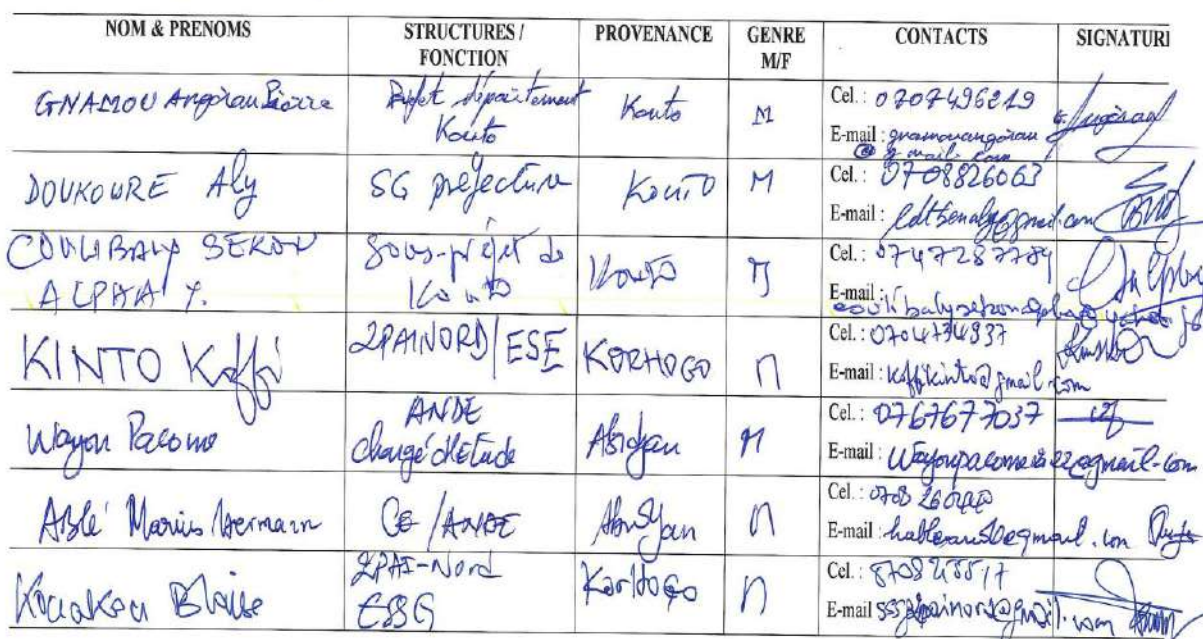 NOM & PRENOMS STRUCTURES / FONCTION PROVENANCE GENRE M/F CONTACTS SIGNATURE
GNAMOU Angoran Pierre Préfet département Kouto Kouto M Cel. : 0707496219
E-mail : gnamouangoran @gmail.com
DOUKOURE Aly SG préfecture Kouto M Cel. : 0708826063
E-mail : @gmail.com
COULIBALY SEKOU ALPHA Y. Sous-préfet de Kouto Kouto M Cel. : 0747287784
E-mail :
KINTO Koffi 2PAINORD/ESE KORHOGO M Cel. : 0704734937
E-mail : koffikinto@gmail.com
Wayou Pacome ANDE Chargé d'Etude Abidjan M Cel. : 0767677037
E-mail :
Ablé Marius Hermann CE/ANDE Abidjan M Cel. : 0708
E-mail :
Kouakou Blaise 2PAI-Nord ESSG Korhogo M Cel. :
E-mail